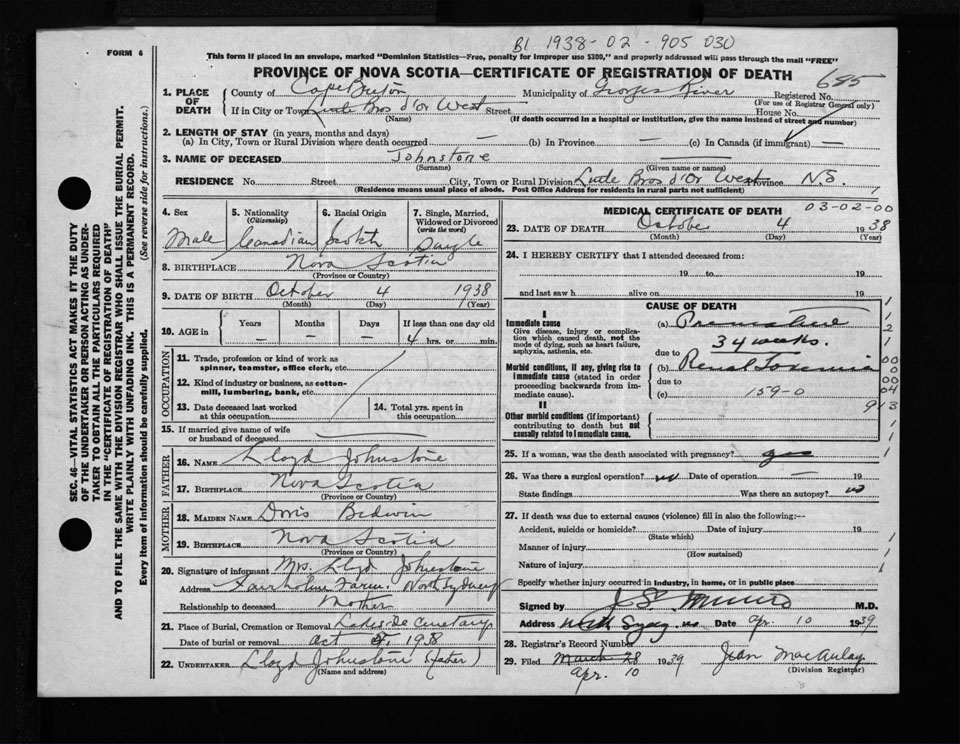 B1 1938-02-905 030
FORM 6
This form if placed in an envelope, marked "Dominion Statistics—Free, penalty for improper use $300," and properly addressed will pass through the mail "FREE"
PROVINCE OF NOVA SCOTIA—CERTIFICATE OF REGISTRATION OF DEATH
685
1. PLACE OF DEATH County of Cape Breton Municipality of Georges River Registered No.
(For use of Registrar General only)
If in City or Town Little Bras d'Or West Street House No.
(Name) (If death occurred in a hospital or institution, give the name instead of street and number)
2. LENGTH OF STAY (in years, months and days)
(a) In City, Town or Rural Division where death occurred — (b) In Province — (c) In Canada (if immigrant) —
3. NAME OF DECEASED Johnstone —
(Surname) (Given name or names)
RESIDENCE No. Street City, Town or Rural Division Little Bras d'Or West Province N.S.
(Residence means usual place of abode. Post Office Address for residents in rural parts not sufficient)
SEC. 46—VITAL STATISTICS ACT MAKES IT THE DUTY
OF THE UNDERTAKER OR PERSON ACTING AS UNDER-
TAKER TO OBTAIN ALL THE PARTICULARS REQUIRED
IN THE "CERTIFICATE OF REGISTRATION OF DEATH"
AND TO FILE THE SAME WITH THE DIVISION REGISTRAR WHO SHALL ISSUE THE BURIAL PERMIT.
WRITE PLAINLY WITH UNFADING INK. THIS IS A PERMANENT RECORD.
Every item of information should be carefully supplied. (See reverse side for instructions.)
4. Sex 5. Nationality (Citizenship) 6. Racial Origin 7. Single, Married, Widowed or Divorced (write the word)
Male Canadian Scotch Single
8. BIRTHPLACE Nova Scotia
(Province or Country)
9. DATE OF BIRTH October 4 1938
(Month) (Day) (Year)
10. AGE in Years Months Days If less than one day old
— — — 4 hrs. or min.
OCCUPATION
11. Trade, profession or kind of work as spinner, teamster, office clerk, etc.
12. Kind of industry or business, as cotton-mill, lumbering, bank, etc.
13. Date deceased last worked at this occupation 14. Total yrs. spent in this occupation
15. If married give name of wife or husband of deceased —
FATHER
16. NAME Lloyd Johnstone
17. BIRTHPLACE Nova Scotia
(Province or Country)
MOTHER
18. MAIDEN NAME Doris
19. BIRTHPLACE Nova Scotia
(Province or Country)
20. Signature of informant Mrs. Lloyd Johnstone
Address Fairholm Farm. North Sydney
Relationship to deceased Mother
21. Place of Burial, Cremation or Removal Cemetary
Date of burial or removal Oct 1938
22. UNDERTAKER Lloyd Johnstone (father)
(Name and address)
03-02-00
MEDICAL CERTIFICATE OF DEATH
23. DATE OF DEATH October 4 1938
(Month) (Day) (Year)
24. I HEREBY CERTIFY that I attended deceased from:
19 to 19
and last saw h alive on 19
CAUSE OF DEATH
I
Immediate cause
Give disease, injury or complication which caused death, not the mode of dying, such as heart failure, asphyxia, asthenia, etc.
(a) Premature
34 weeks.
due to
Morbid conditions, if any, giving rise to immediate cause (stated in order proceeding backwards from immediate cause).
(b) Renal Toxemia
due to
(c) 159-0
913
II
Other morbid conditions (if important) contributing to death but not causally related to immediate cause.
25. If a woman, was the death associated with pregnancy? yes
26. Was there a surgical operation? no Date of operation — 19
State findings Was there an autopsy? no
27. If death was due to external causes (violence) fill in also the following:—
Accident, suicide or homicide? Date of injury 19
(State which)
Manner of injury
(How sustained)
Nature of injury
Specify whether injury occurred in industry, in home, or in public place
Signed by Munro M.D.
Address North Sydney NS Date Apr. 10 1939
28. Registrar's Record Number
29. Filed March 28 1939 Jean MacAulay
Apr. 10 (Division Registrar)